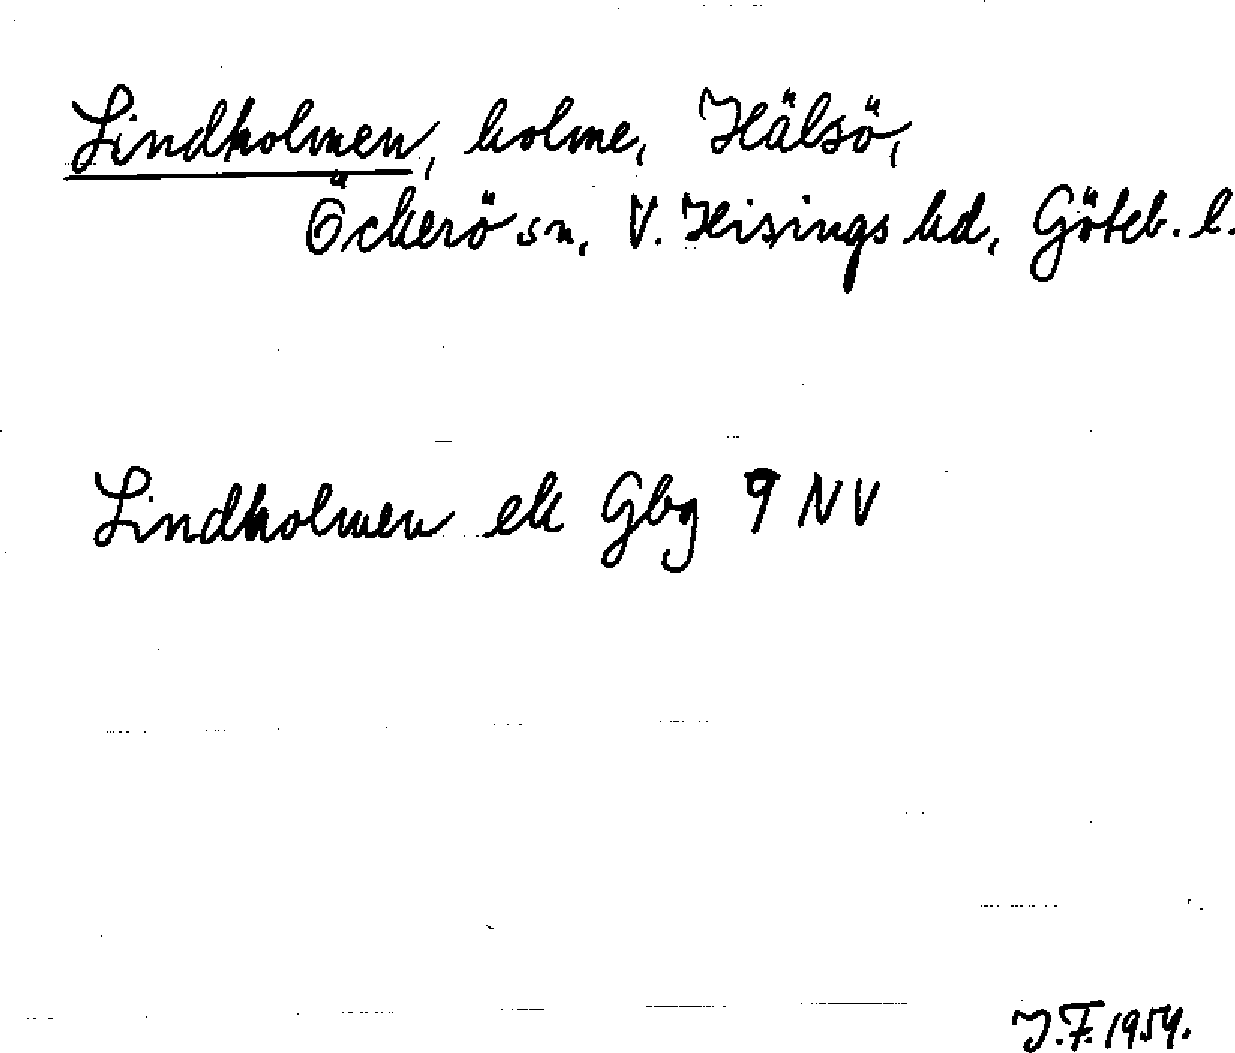 Lindholmen, holme, Hälsö,
Öckerö sn, V. Hisings hd, Göteb. l.
Lindholmen ek Gbg 9 NV
J.F. 1954.